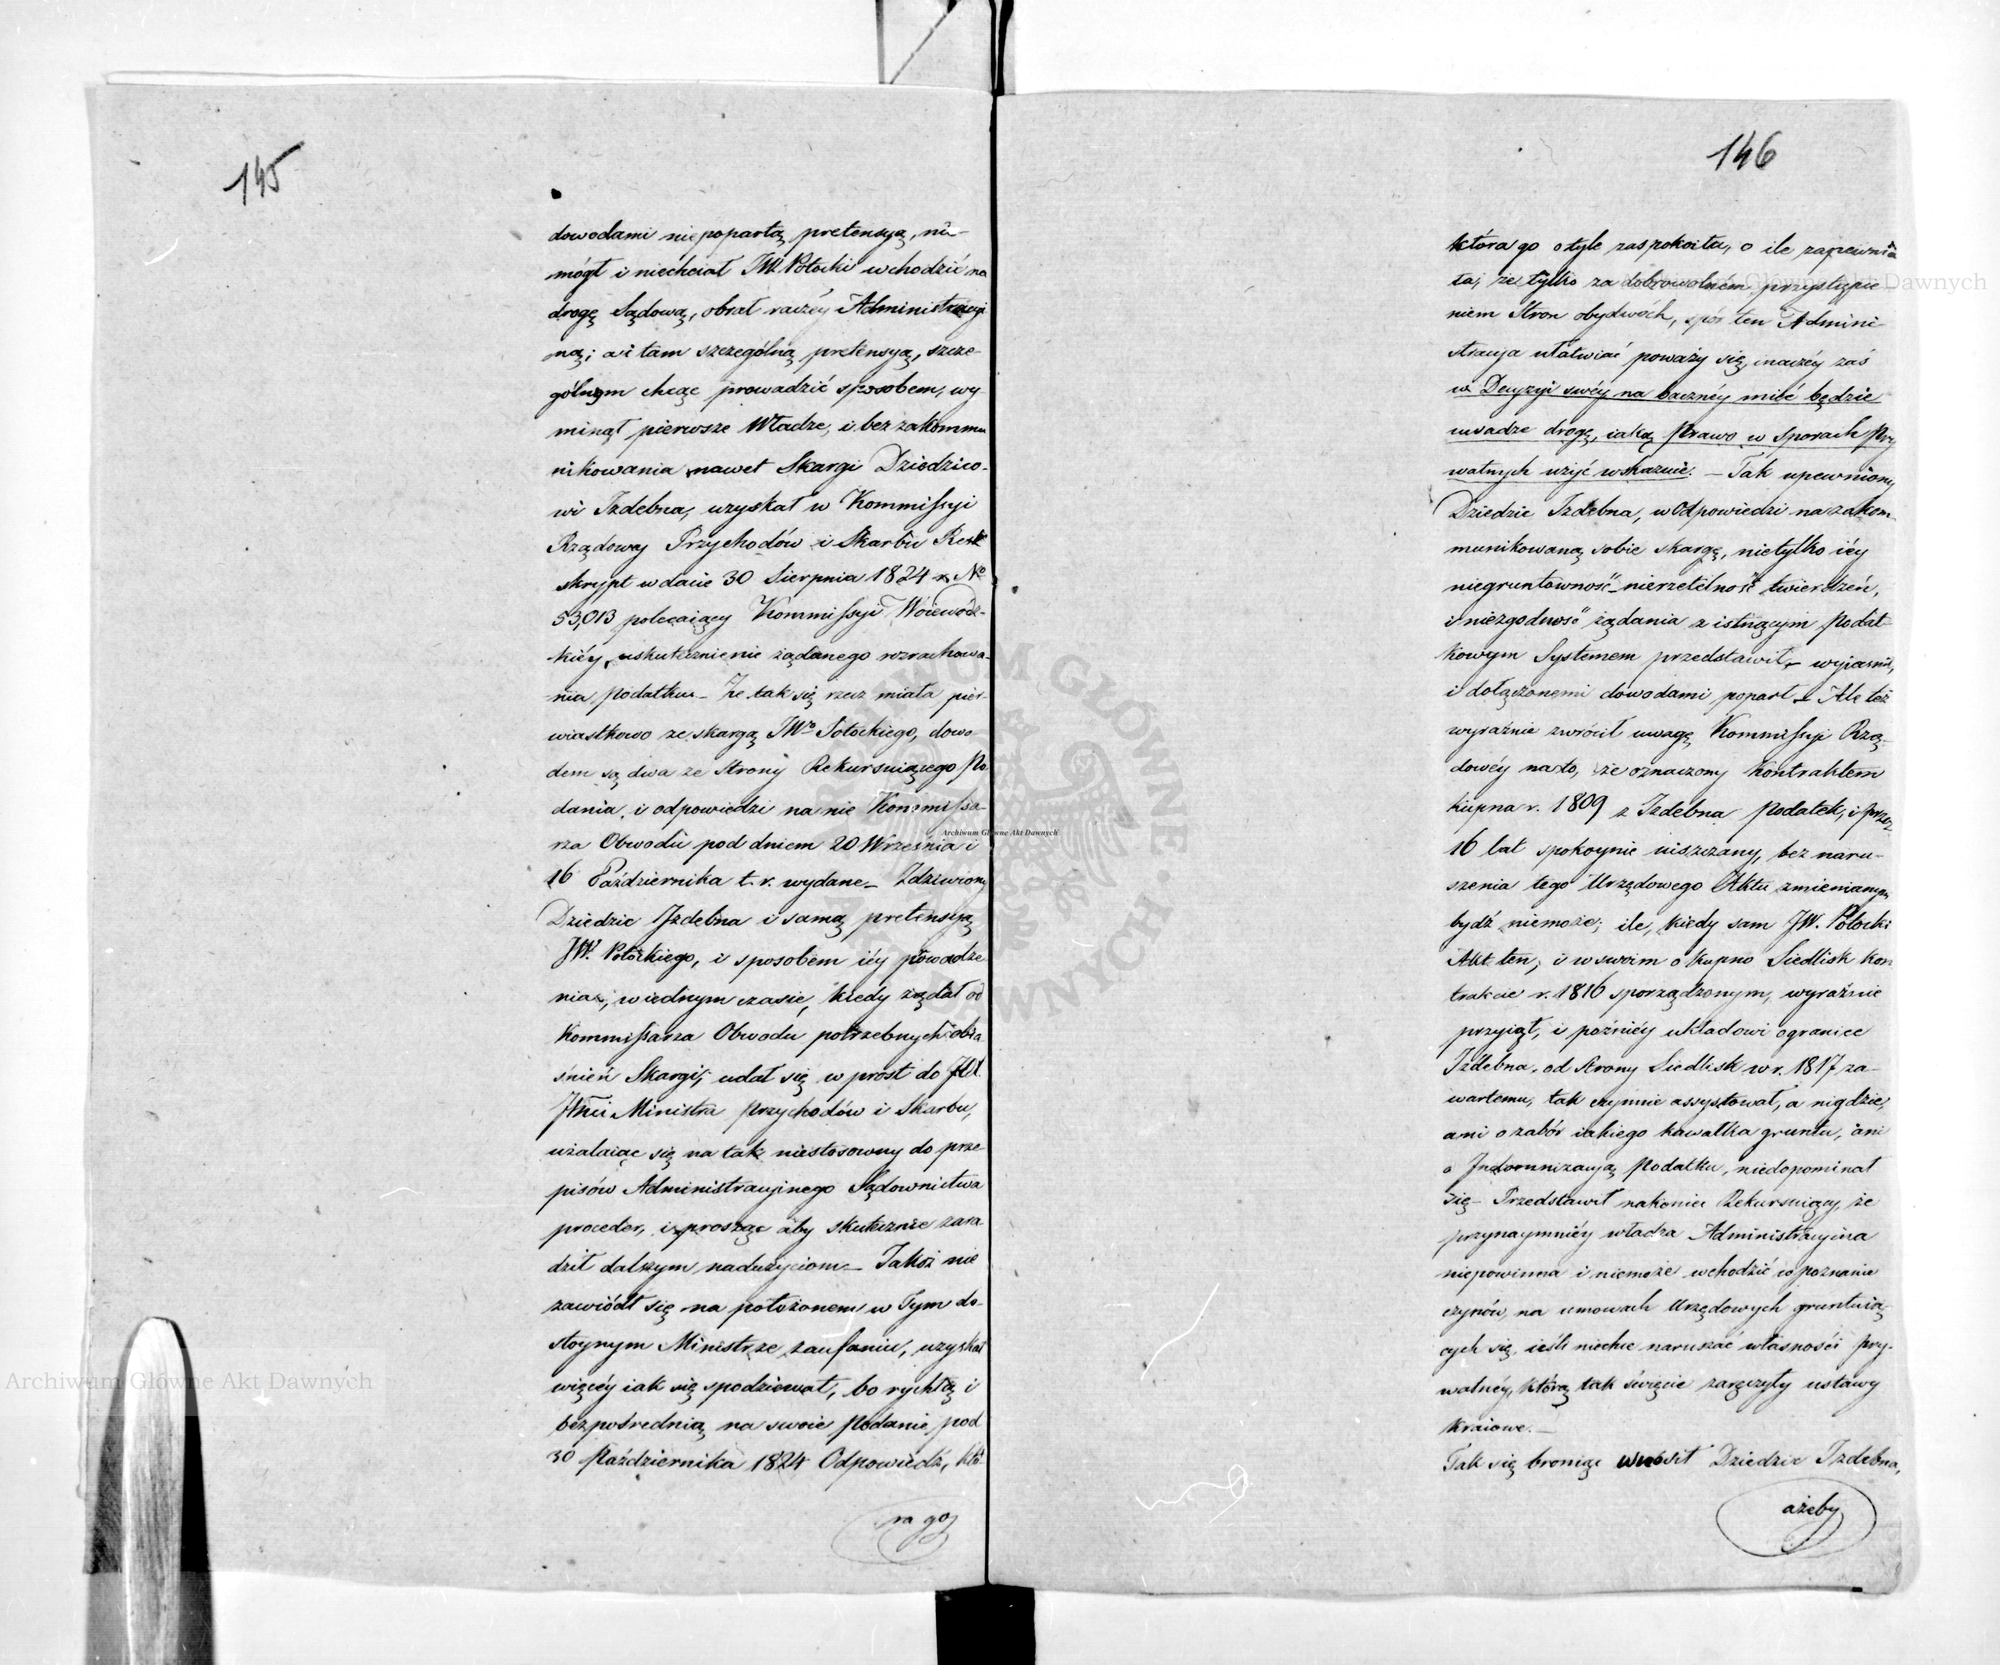 145
dowodami niepopartą pretensyą, nie-
mógł i niechciał JW. Potocki wchodzić na
drogę Sądową, obrał raczéy Administracyi
ną; a i tam szczególną pretensyą, szcze-
gólnym chcąc prowadzić sposobem, wy-
minął pierwsze Władze, i bez zakommu
nikowania nawet Skargi Dziedzico-
wi Izdebna, uzyskał w Kommissyi
Rządowey Przychodów i Skarbu Resk
skrypt w dacie 30 Sierpnia 1824 r. No
53,013 polecaiący Kommissyi Woiewódz-
kiéy uskutecznienie żądanego rozrachowa-
nia podatku – Że tak się rzecz miała pier-
wiastkowo ze skargą JWo Potockiego, dowo-
dem są dwa ze Strony Rekursuiącego Po
dania, i odpowiedzi na nie Kommissa-
rza Obwodu pod dniem 20 Września i
16 Października t. r. wydane – Zdziwiony
Dziedzic Izdebna i samą pretensyą
JWo Potockiego, i sposobem iéy prowadze
nia, w iednym czasie, kiedy żądał od
Kommissarza Obwodu potrzebnych obia
śnień Skargi, udał się w prost do JO.
Ministra Przychodów i Skarbu,
użalaiąc się na tak niestosowny do prze-
pisów Administracyinego Sądownictwa
proceder, i prosząc aby skutecznie zara
dził dalszym nadużyciom – Jakoż nie
zawiódł się na położonem w Tym do-
stoynym Ministrze zaufaniu, uzyskał
więcéy iak się spodziewał, bo rychłą i
bezpośrednią na swoie Podanie pod
30 Października 1824 Odpowiedź, któ-
ra go
146
która go o tyle zaspokoiła, o ile zapewnia
ła, że tylko za dobrowolném przystąpie
niem Stron obydwóch, spór ten Admini
stracya ułatwiać poważy się, inaczéy zaś
w Decyzyi swéy na bacznéy mieć będzie
uwadze drogę, iaką Prawo w sporach Pry
watnych użyć wskazuie. – Tak upewniony
Dziedzic Izdebna, w Odpowiedzi na zakom-
munikowaną sobie skargę, nietylko iéy
niegruntowność – nierzetelność twierdzeń,
i niezgodność żądania z istnącym Podat-
kowym Systemem przedstawił – wyiaśnił,
i dołączonemi dowodami poparł – Ale też
wyraźnie zwrócił uwagę Kommissyi Rzą-
dowéy na to, że oznaczony Kontraktem
kupna r. 1809 z Izdebna Podatek, i przez
16 lat spokoynie uiszczany, bez naru-
szenia tego Urzędowego Aktu zmienianym
bydź niemoże; ile, kiedy sam JW. Potocki
Akt ten, i w swoim o kupno Siedlisk kon
trakcie r. 1816 sporządzonym, wyraźnie
przyiął, i późniéy układowi o granice
Izdebna, od strony Siedlisk w r. 1817 za-
wartemu, tak czynnie assystował, a nigdzie,
ani o zabór iakiego kawałka gruntu, ani
o Indemnizacyą Podatku, niedopominał
się – Przedstawił nakoniec Rekursuiący, że
przynaymniéy władza Administracyina
niepowinna i niemoże wchodzić w poznanie
czynów, na umowach Urzędowych gruntuią-
cych się, ieśli niechce naruszać własności pry-
watnéy, którą tak święcie zaręczyły ustawy
kraiowe. –
Tak się broniąc wnosił Dziedzic Izdebna,
ażeby
Archiwum Główne Akt Dawnych
Archiwum Główne Akt Dawnych
Archiwum Główne Akt Dawnych